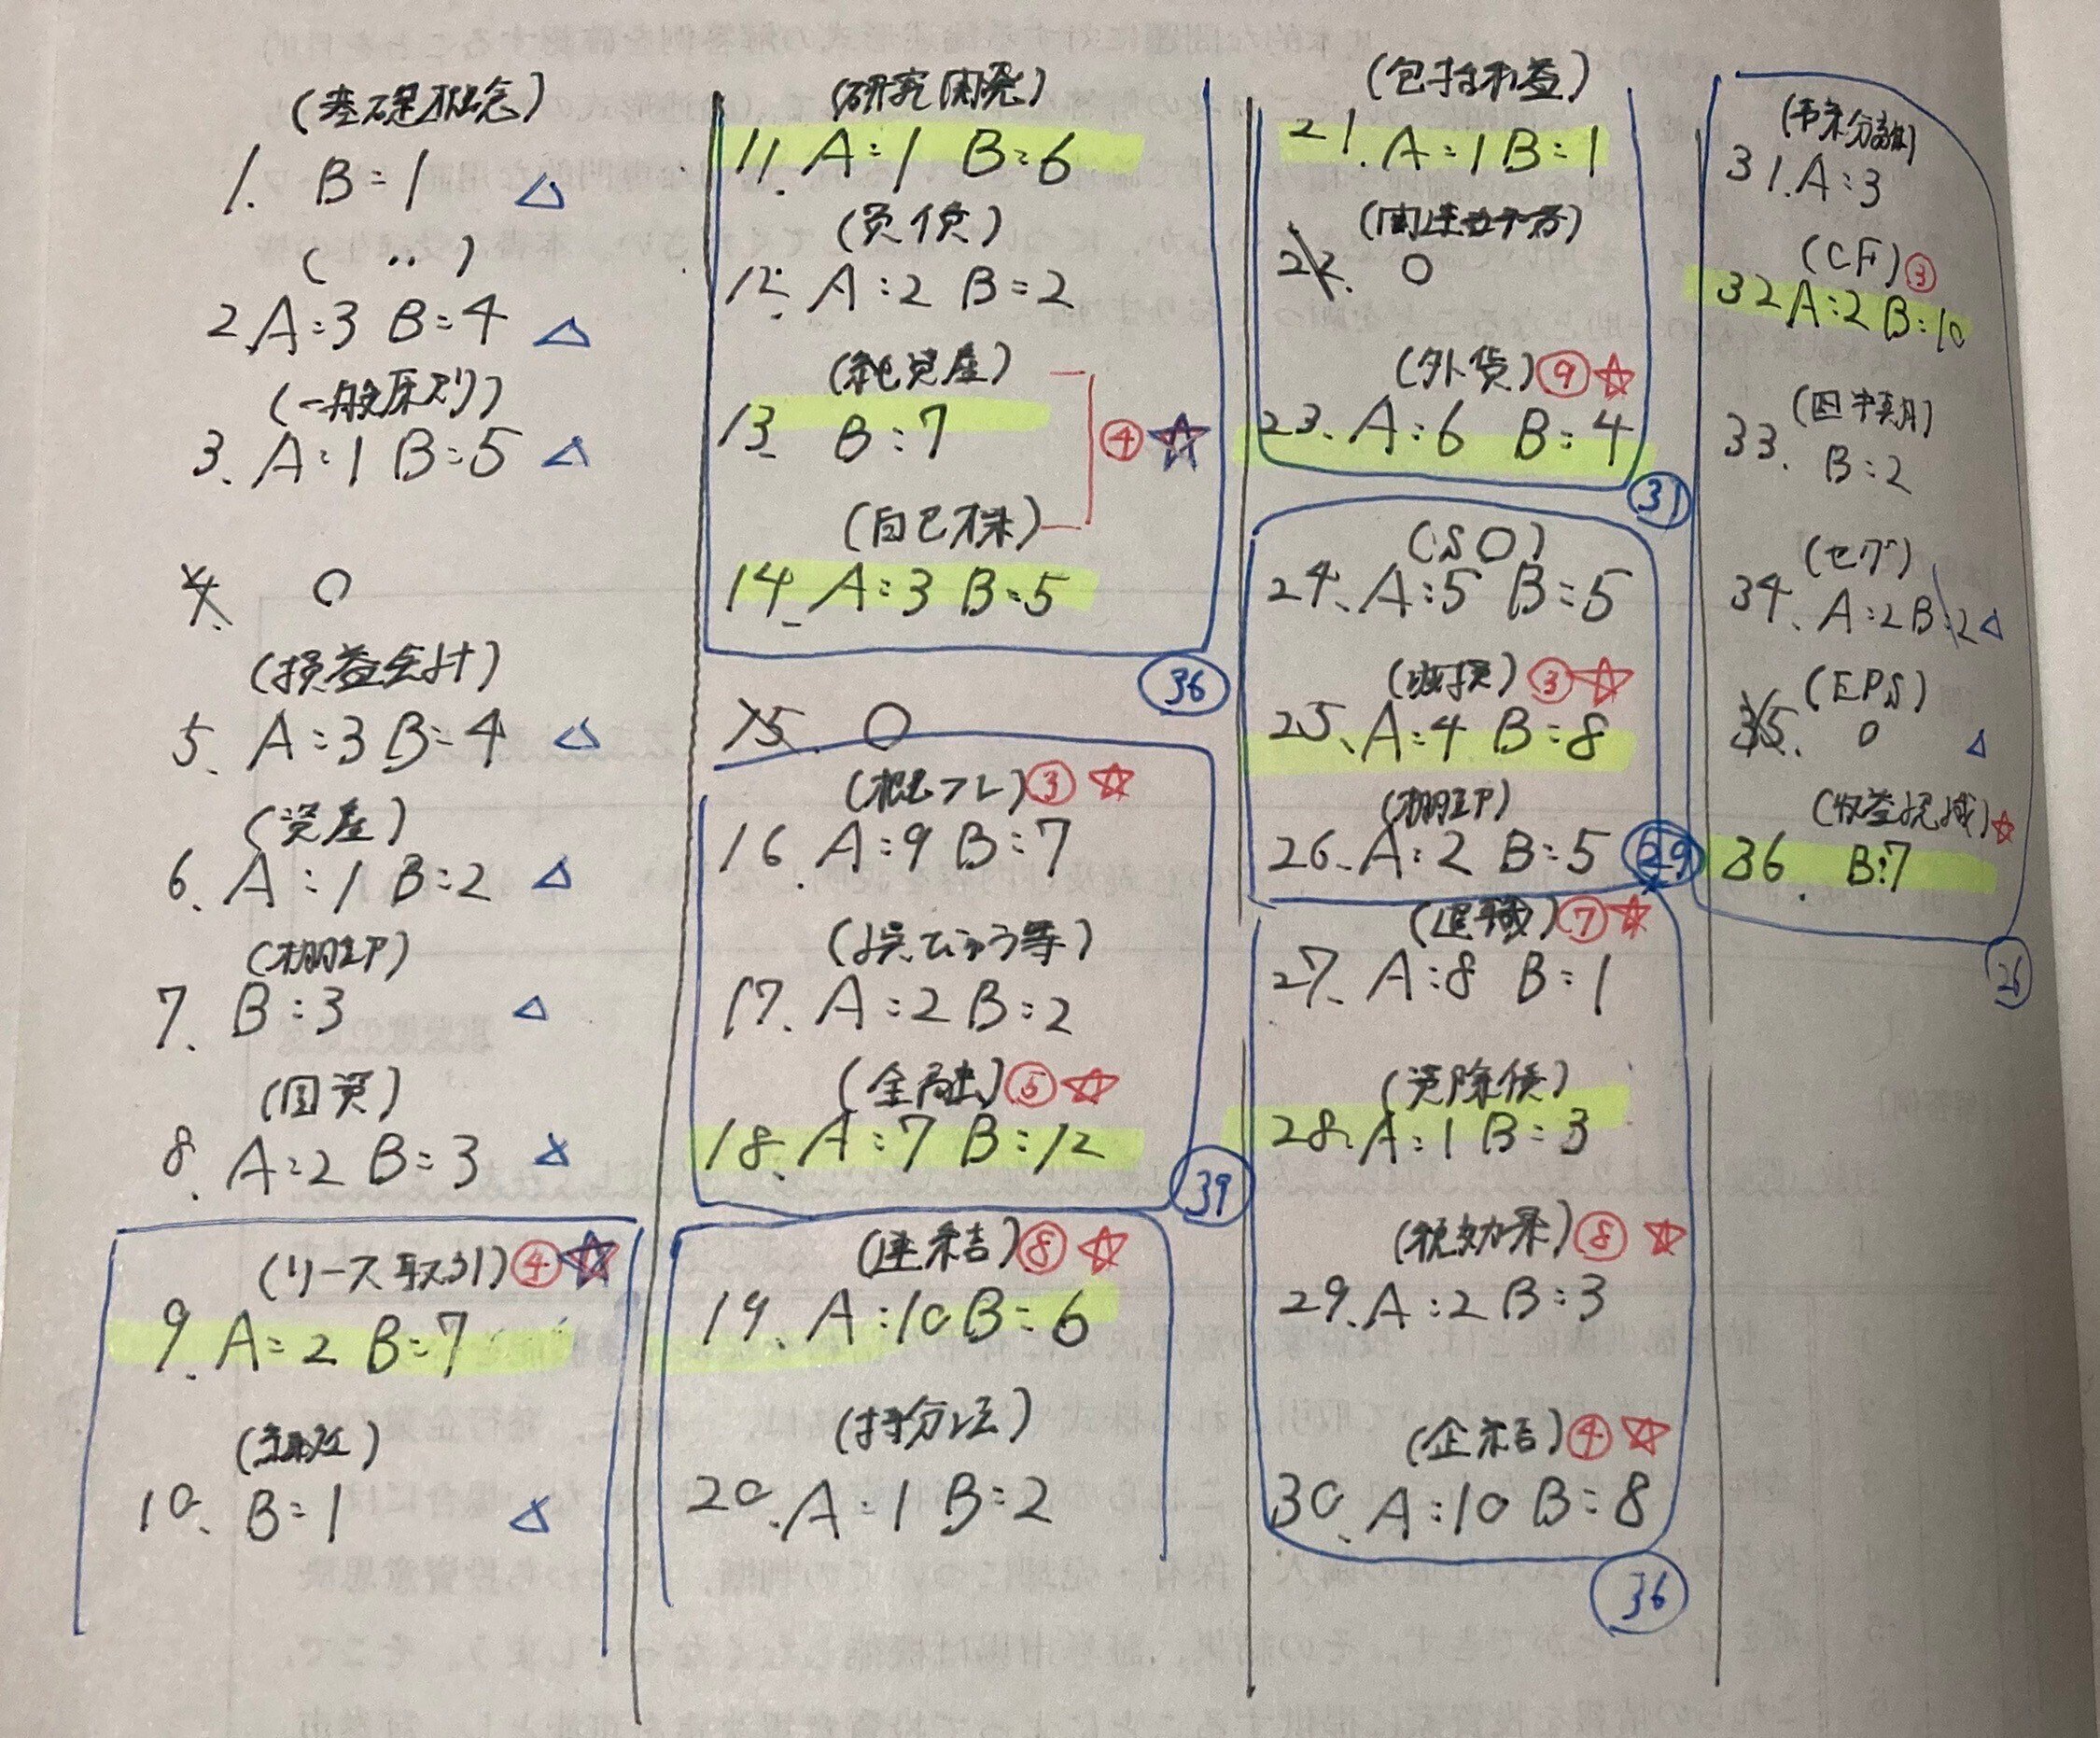 (基礎概念)
1. B=1 △
( 〃 )
2. A:3 B:4 △
(一般原則)
3. A:1 B:5 △
4. 0
(損益会計)
5. A:3 B:4 △
(資産)
6. A:1 B:2 △
(棚卸)
7. B:3 △
(固資)
8. A:2 B:3 △
(リース取引) ④ ☆
9. A:2 B:7
10. B=1 △
(研究開発)
11. A:1 B:6
(負債)
12. A:2 B=2
(純資産)
13. B:7 ④ ☆
(自己株)
14. A:3 B:5
36
15. 0
(概フレ) ③ ☆
16. A:9 B:7
(誤びゅう等)
17. A:2 B:2
(金融) ⑤ ☆
18. A:7 B:12
39
(連結) ⑧ ☆
19. A:10 B:6
(持分法)
20. A:1 B:2
(包括利益)
21. A:1 B:1
(関連当事者)
22. 0
(外貨) ⑨ ☆
23. A:6 B:4
31
(SO)
24. A:5 B:5
(減損) ③ ☆
25. A:4 B:8
(棚卸)
26. A:2 B:5
29
(退職) ⑦ ☆
27. A:8 B:1
(資除債)
28. A:1 B:3
(税効果) ⑧ ☆
29. A:2 B:3
(企結) ④ ☆
30. A:10 B:8
36
(事業分離)
31. A:3
(CF) ③
32 A:2 B:10
(四半期)
33. B:2
(セグ)
34. A:2 B:2 △
(EPS)
35. 0 △
(収益認識) ☆
36. B:7
26